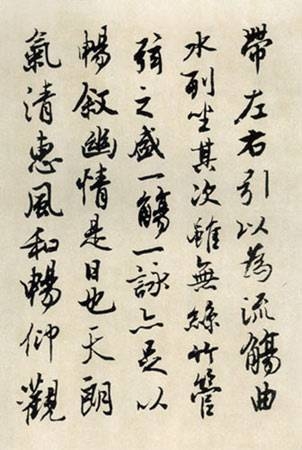 帶左右引以為流觴曲
水列坐其次雖無絲竹管
弦之盛一觴一詠亦足以
暢敘幽情是日也天朗
氣清惠風和暢仰觀